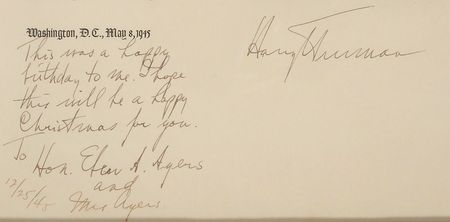 Washington, D.C., May 8, 1945
This was a happy
birthday to me. I hope
this will be a happy
Christmas for you.
To Hon. Eben A. Ayers
and
12/25/45 Mrs Ayers
Harry Truman